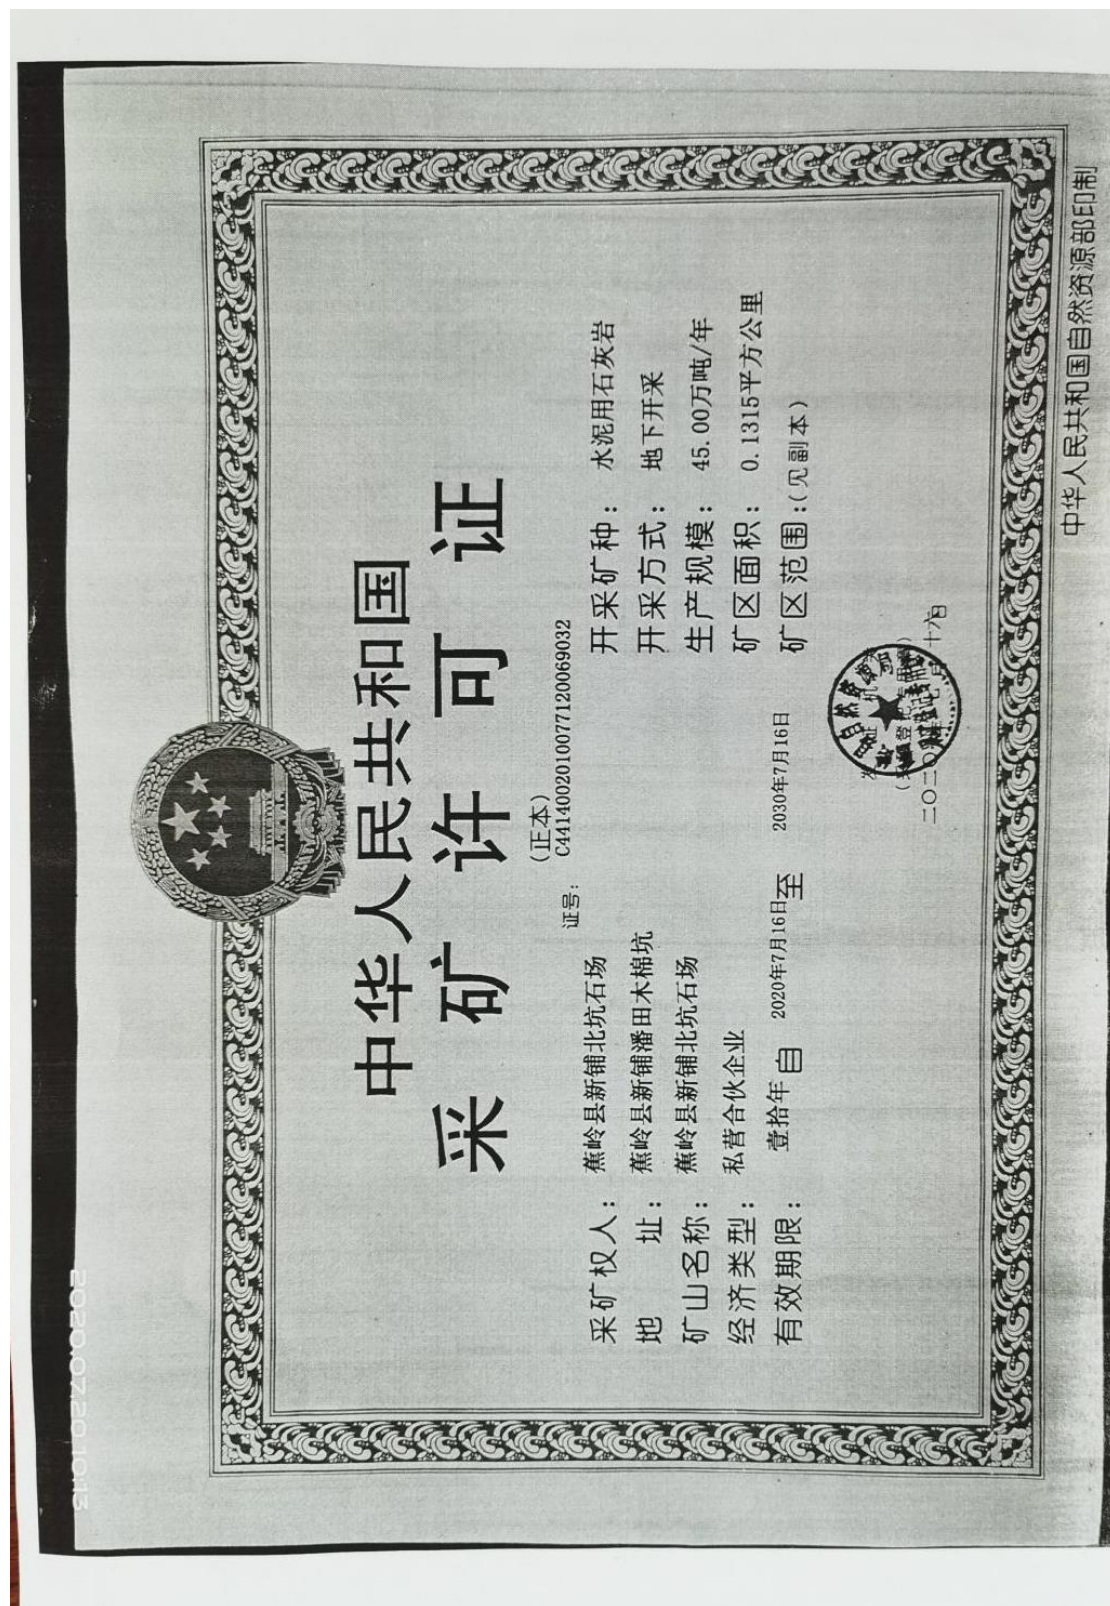 中华人民共和国
采矿许可证
(正本)
证号: C4414002010077120069032
采矿权人: 蕉岭县新铺北坑石场
地址: 蕉岭县新铺潘田木棉坑
矿山名称: 蕉岭县新铺北坑石场
经济类型: 私营合伙企业
有效期限: 壹拾年 自 2020年7月16日 至 2030年7月16日
开采矿种: 水泥用石灰岩
开采方式: 地下开采
生产规模: 45.00万吨/年
矿区面积: 0.1315平方公里
矿区范围:(见副本)
二〇二〇年七月十六日
中华人民共和国自然资源部印制
2020.07.20 10:13